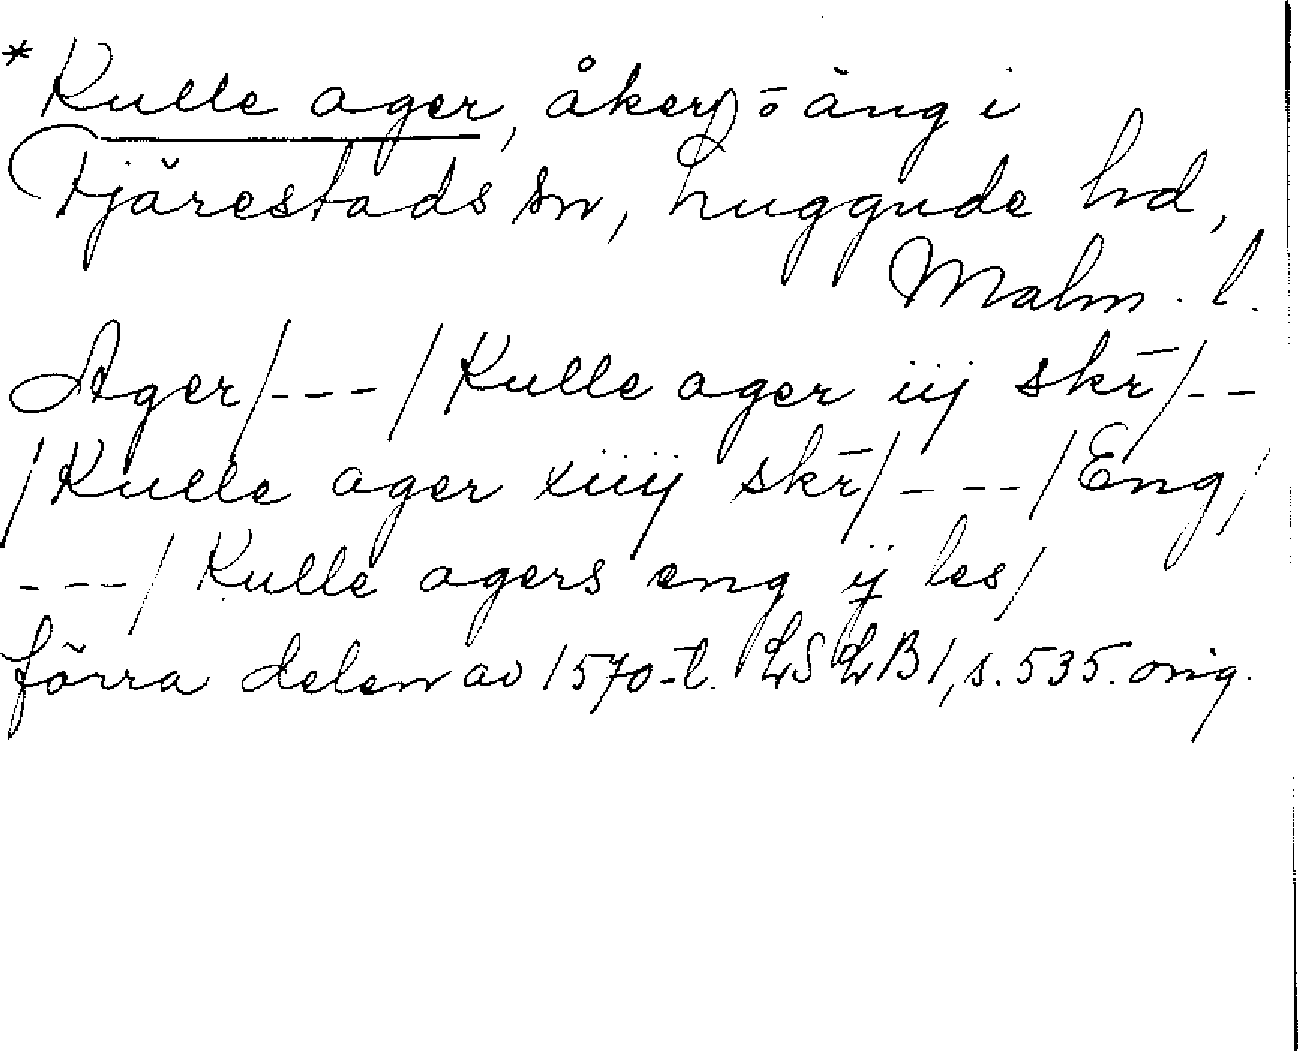 *Kulle ager, åker o äng i
Fjärestads sn, Luggude hd,
Malm. l.
Ager/---/Kulle ager iij skr̄/--
/Kulle ager xiiij skr̄/---/Eng/
---/Kulle agers eng ij les/
förra delen av 1570-t. LSLB1, s. 535. orig.